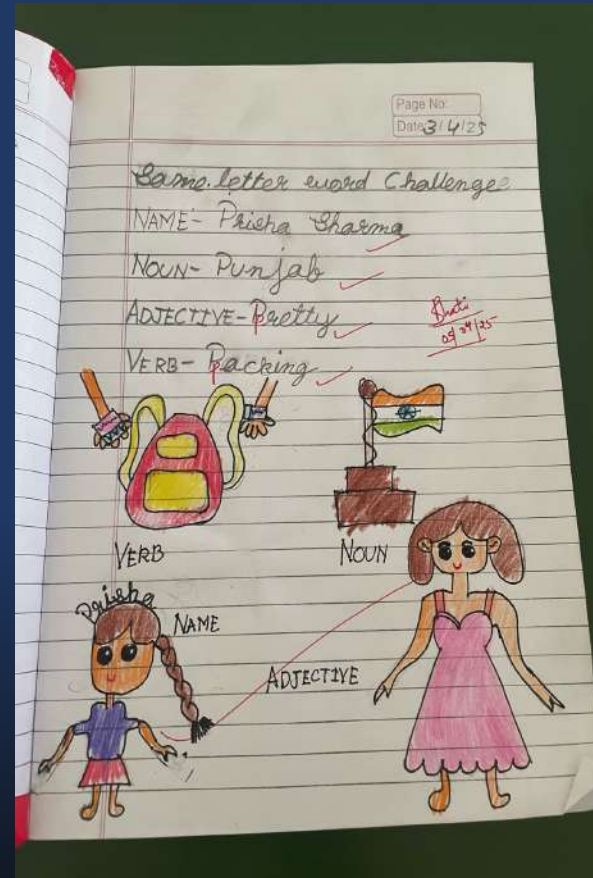 Page No:
Date: 3/4/25
Same letter word Challenge
NAME- Prisha Sharma
NOUN- Punjab
ADJECTIVE- Pretty
VERB- Packing
VERB
NOUN
Prisha
NAME
ADJECTIVE